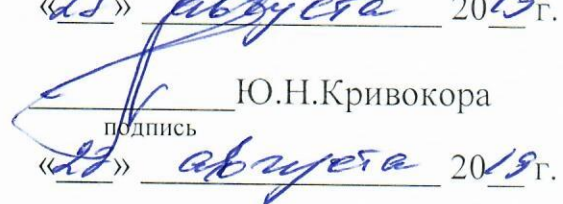 «23» августа 2019 г.
Ю.Н.Кривокора
подпись
«23» августа 2019 г.